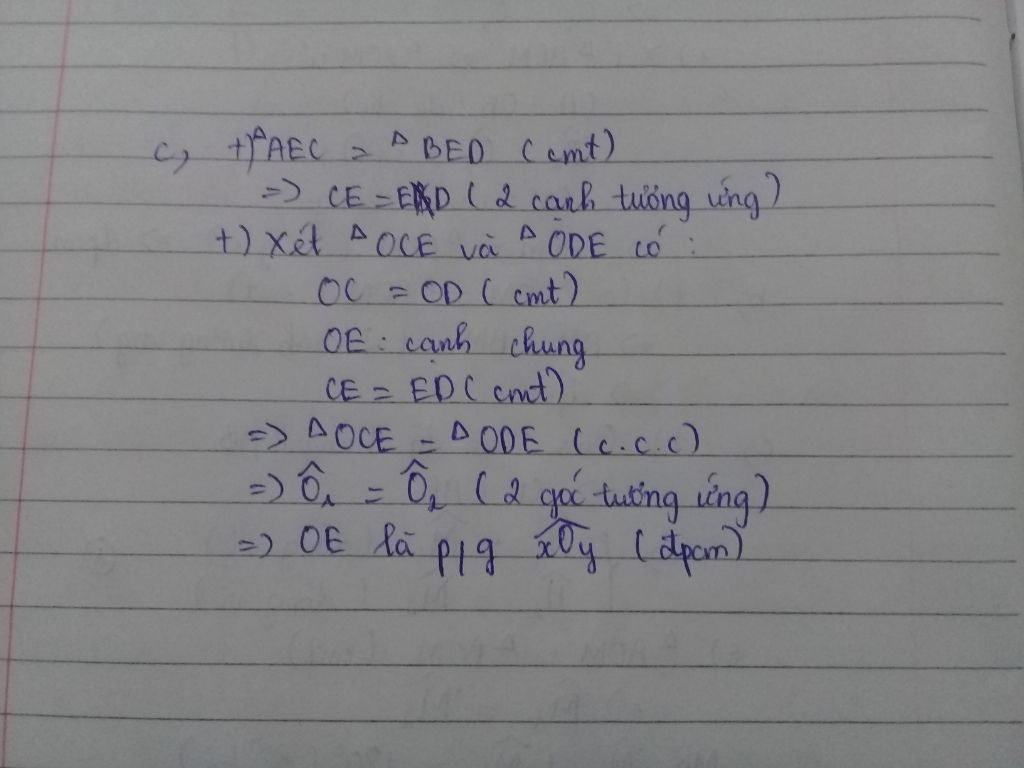 c, +) ΔAEC = ΔBED (cmt)
=> CE = ED (2 cạnh tương ứng)
+) Xét ΔOCE và ΔODE có :
OC = OD (cmt)
OE : cạnh chung
CE = ED (cmt)
=> ΔOCE = ΔODE (c.c.c)
=> Ô₁ = Ô₂ (2 góc tương ứng)
=> OE là p/g x̂Oy (đpcm)